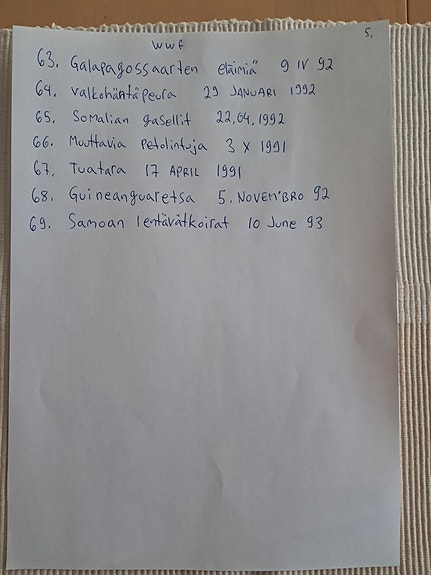 5.
WWF
63. Galapagossaarten eläimiä 9 IV 92
64. Valkohäntäpeura 29 JANUARI 1992
65. Somalian gasellit 22.04.1992
66. Muuttavia petolintuja 3 X 1991
67. Tuatara 17 APRIL 1991
68. Guineanguaretsa 5. NOVEMBRO 92
69. Samoan lentävätkoirat 10 June 93